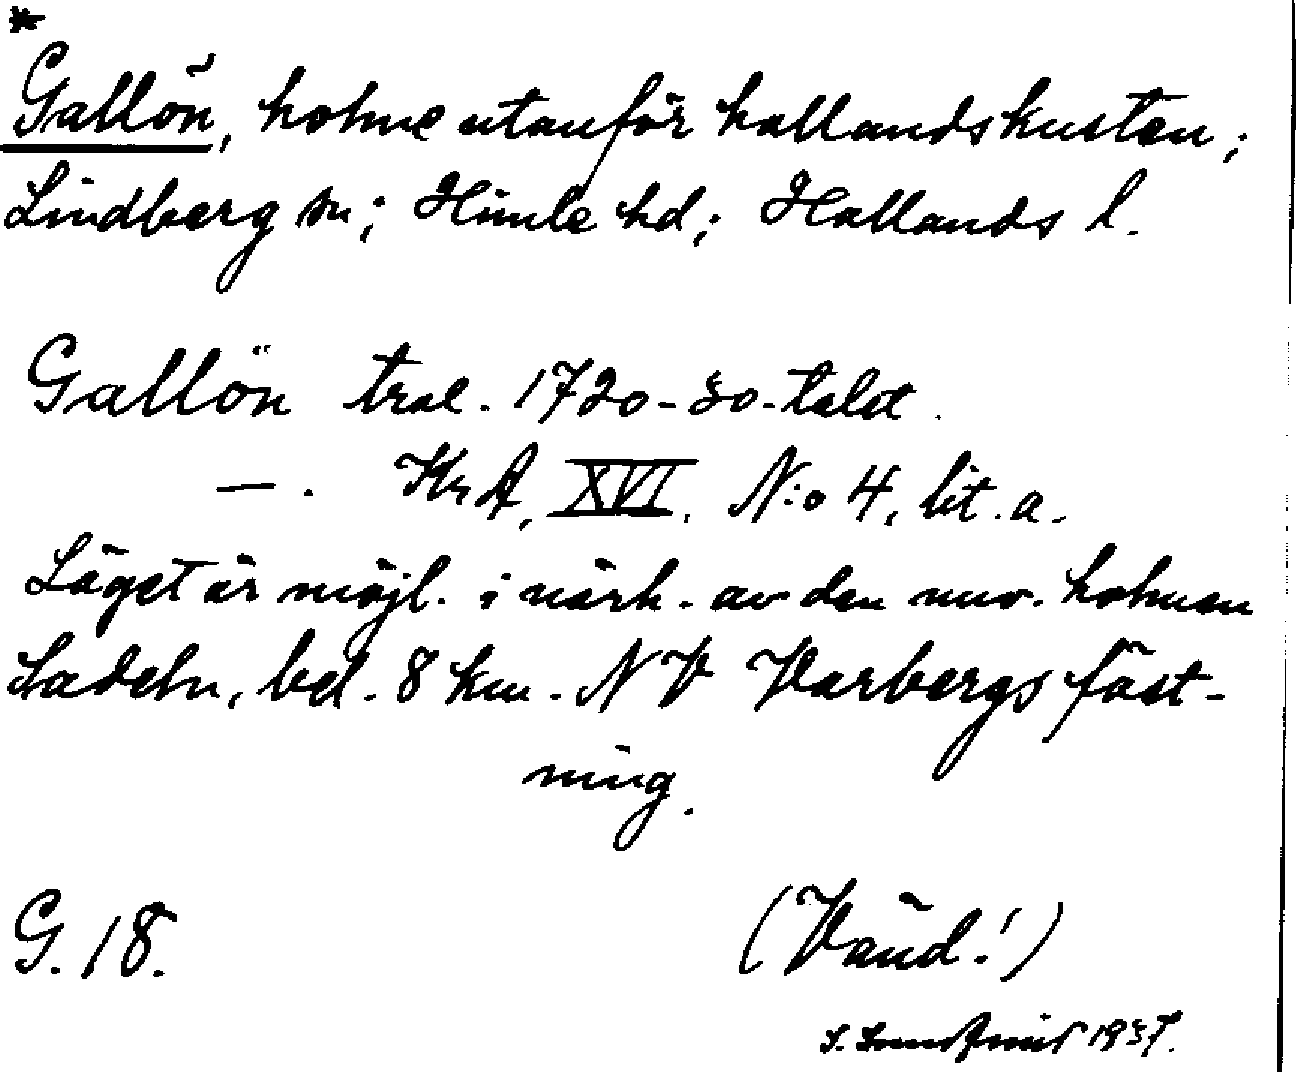 *
Gallön, holme utanför hallandskusten;
Lindberg sn; Himle hd; Hallands l.
Gallön tral. 1720-30-talet.
—. KrA, XVI. N:o 4, lit. a.
Läget är möjl. i närh. av den nuv. holmen
Ladeln, bel. 8 km. NV Varbergs fäst-
ning.
G. 18. (Vänd!)
S. 1937.